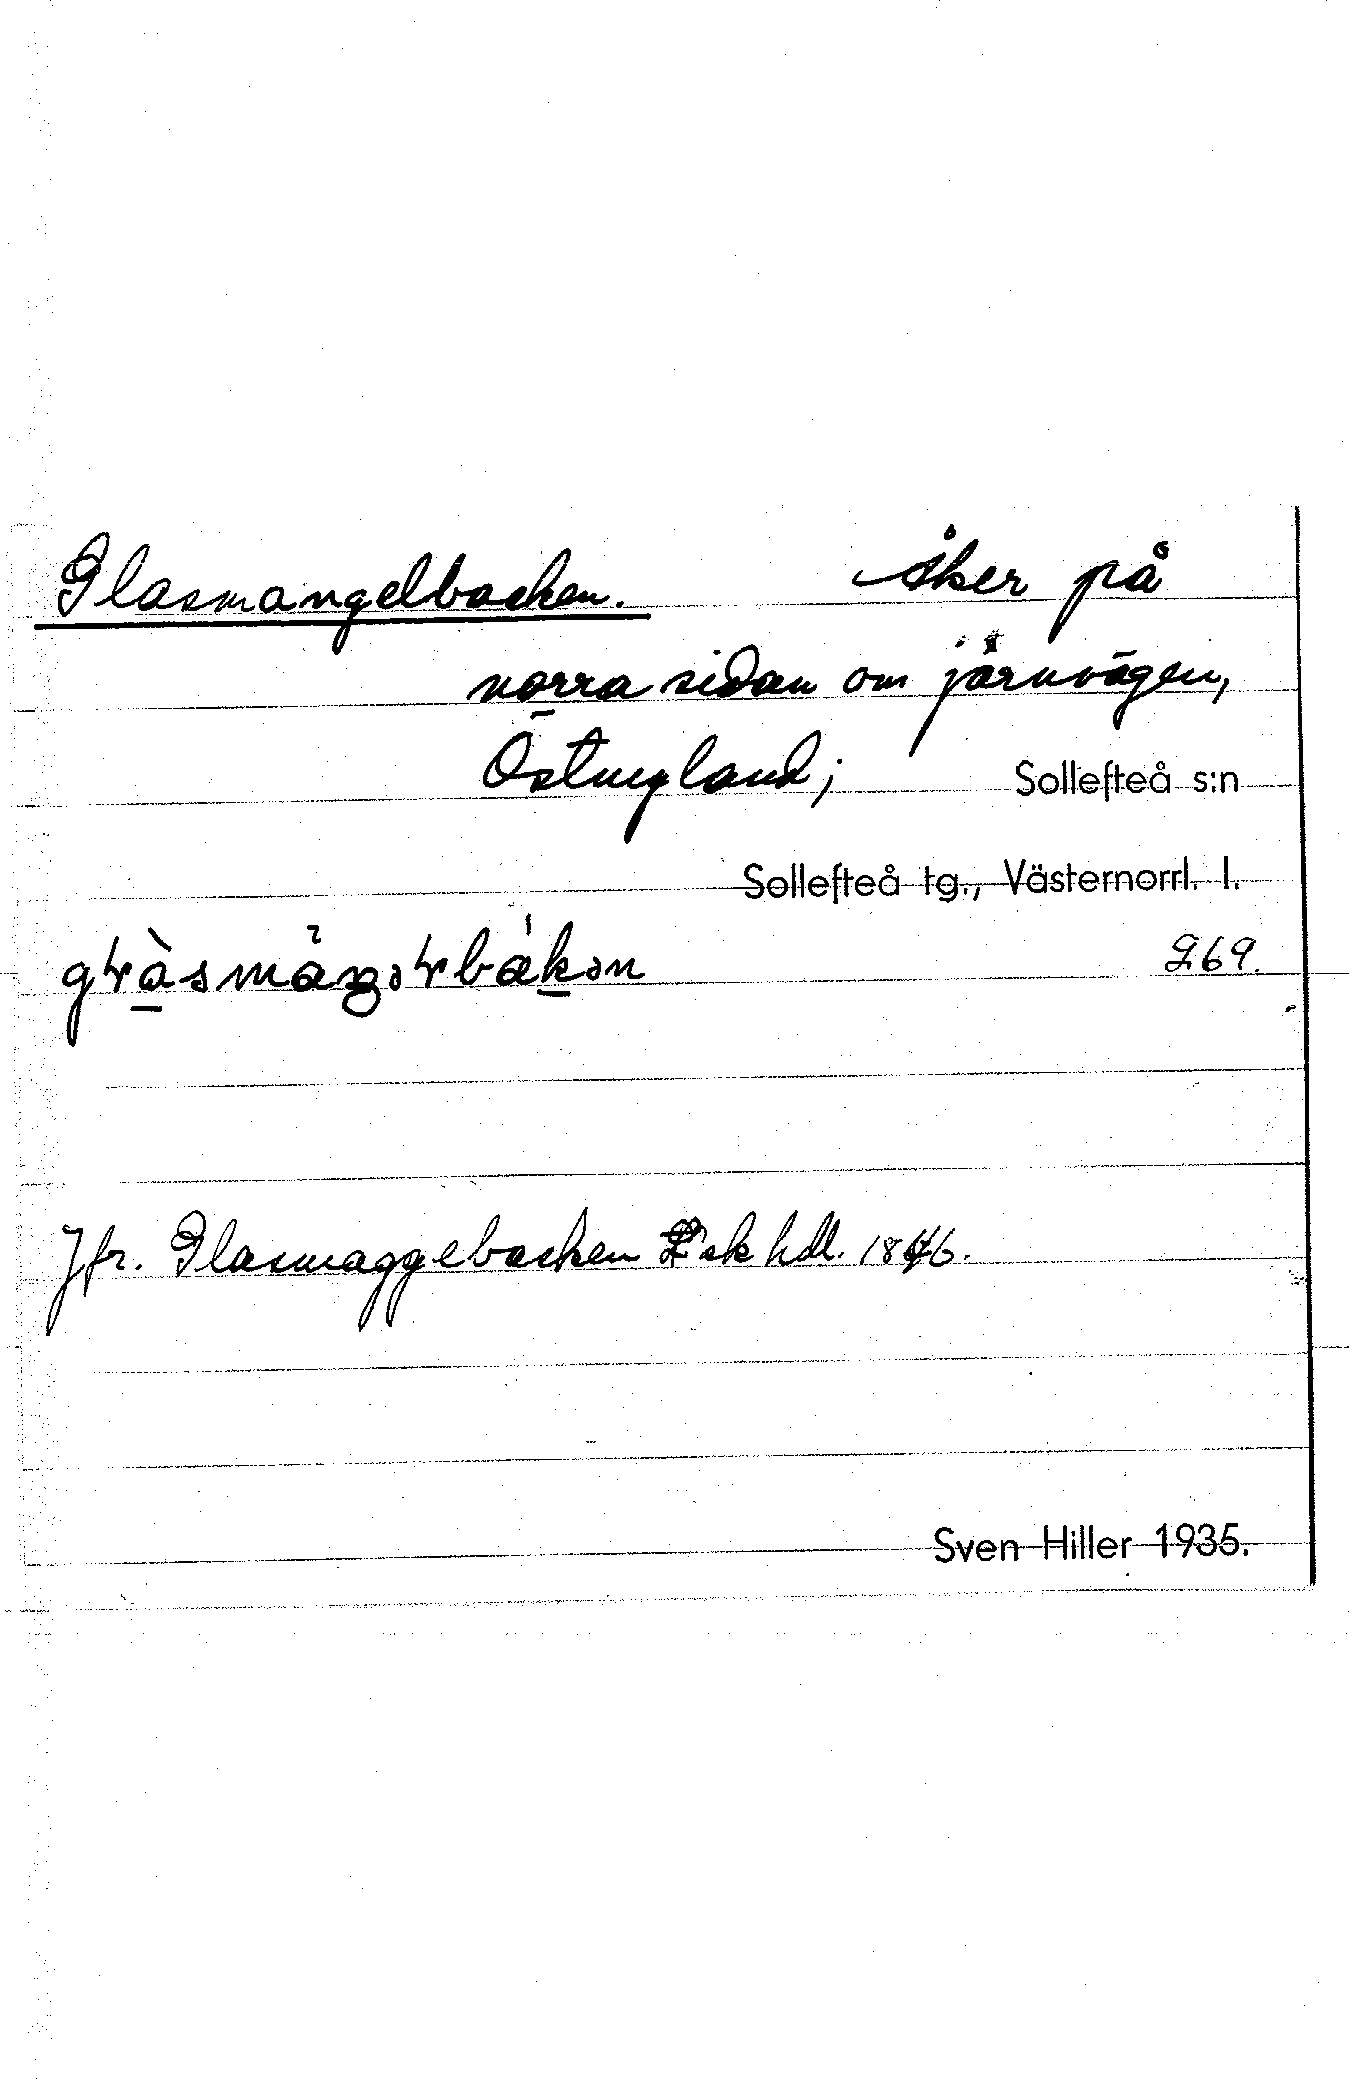 Glasmangelbacken. Åker på
norra sidan om järnvägen,
Östnyland; Sollefteå s:n
Sollefteå tg., Västernorrl. l.
269.
Jfr. Glasmaggebacken Lsk hdl. 1846.
Sven Hiller 1935.